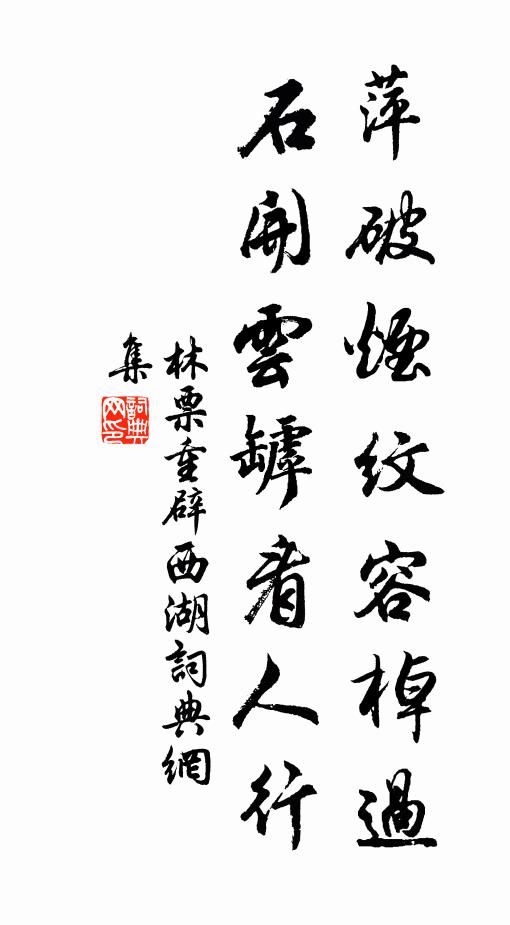 萍破煙紋容棹過
石開雲罅看人行
林栗重辟西湖詞典網
集
詞典
网印